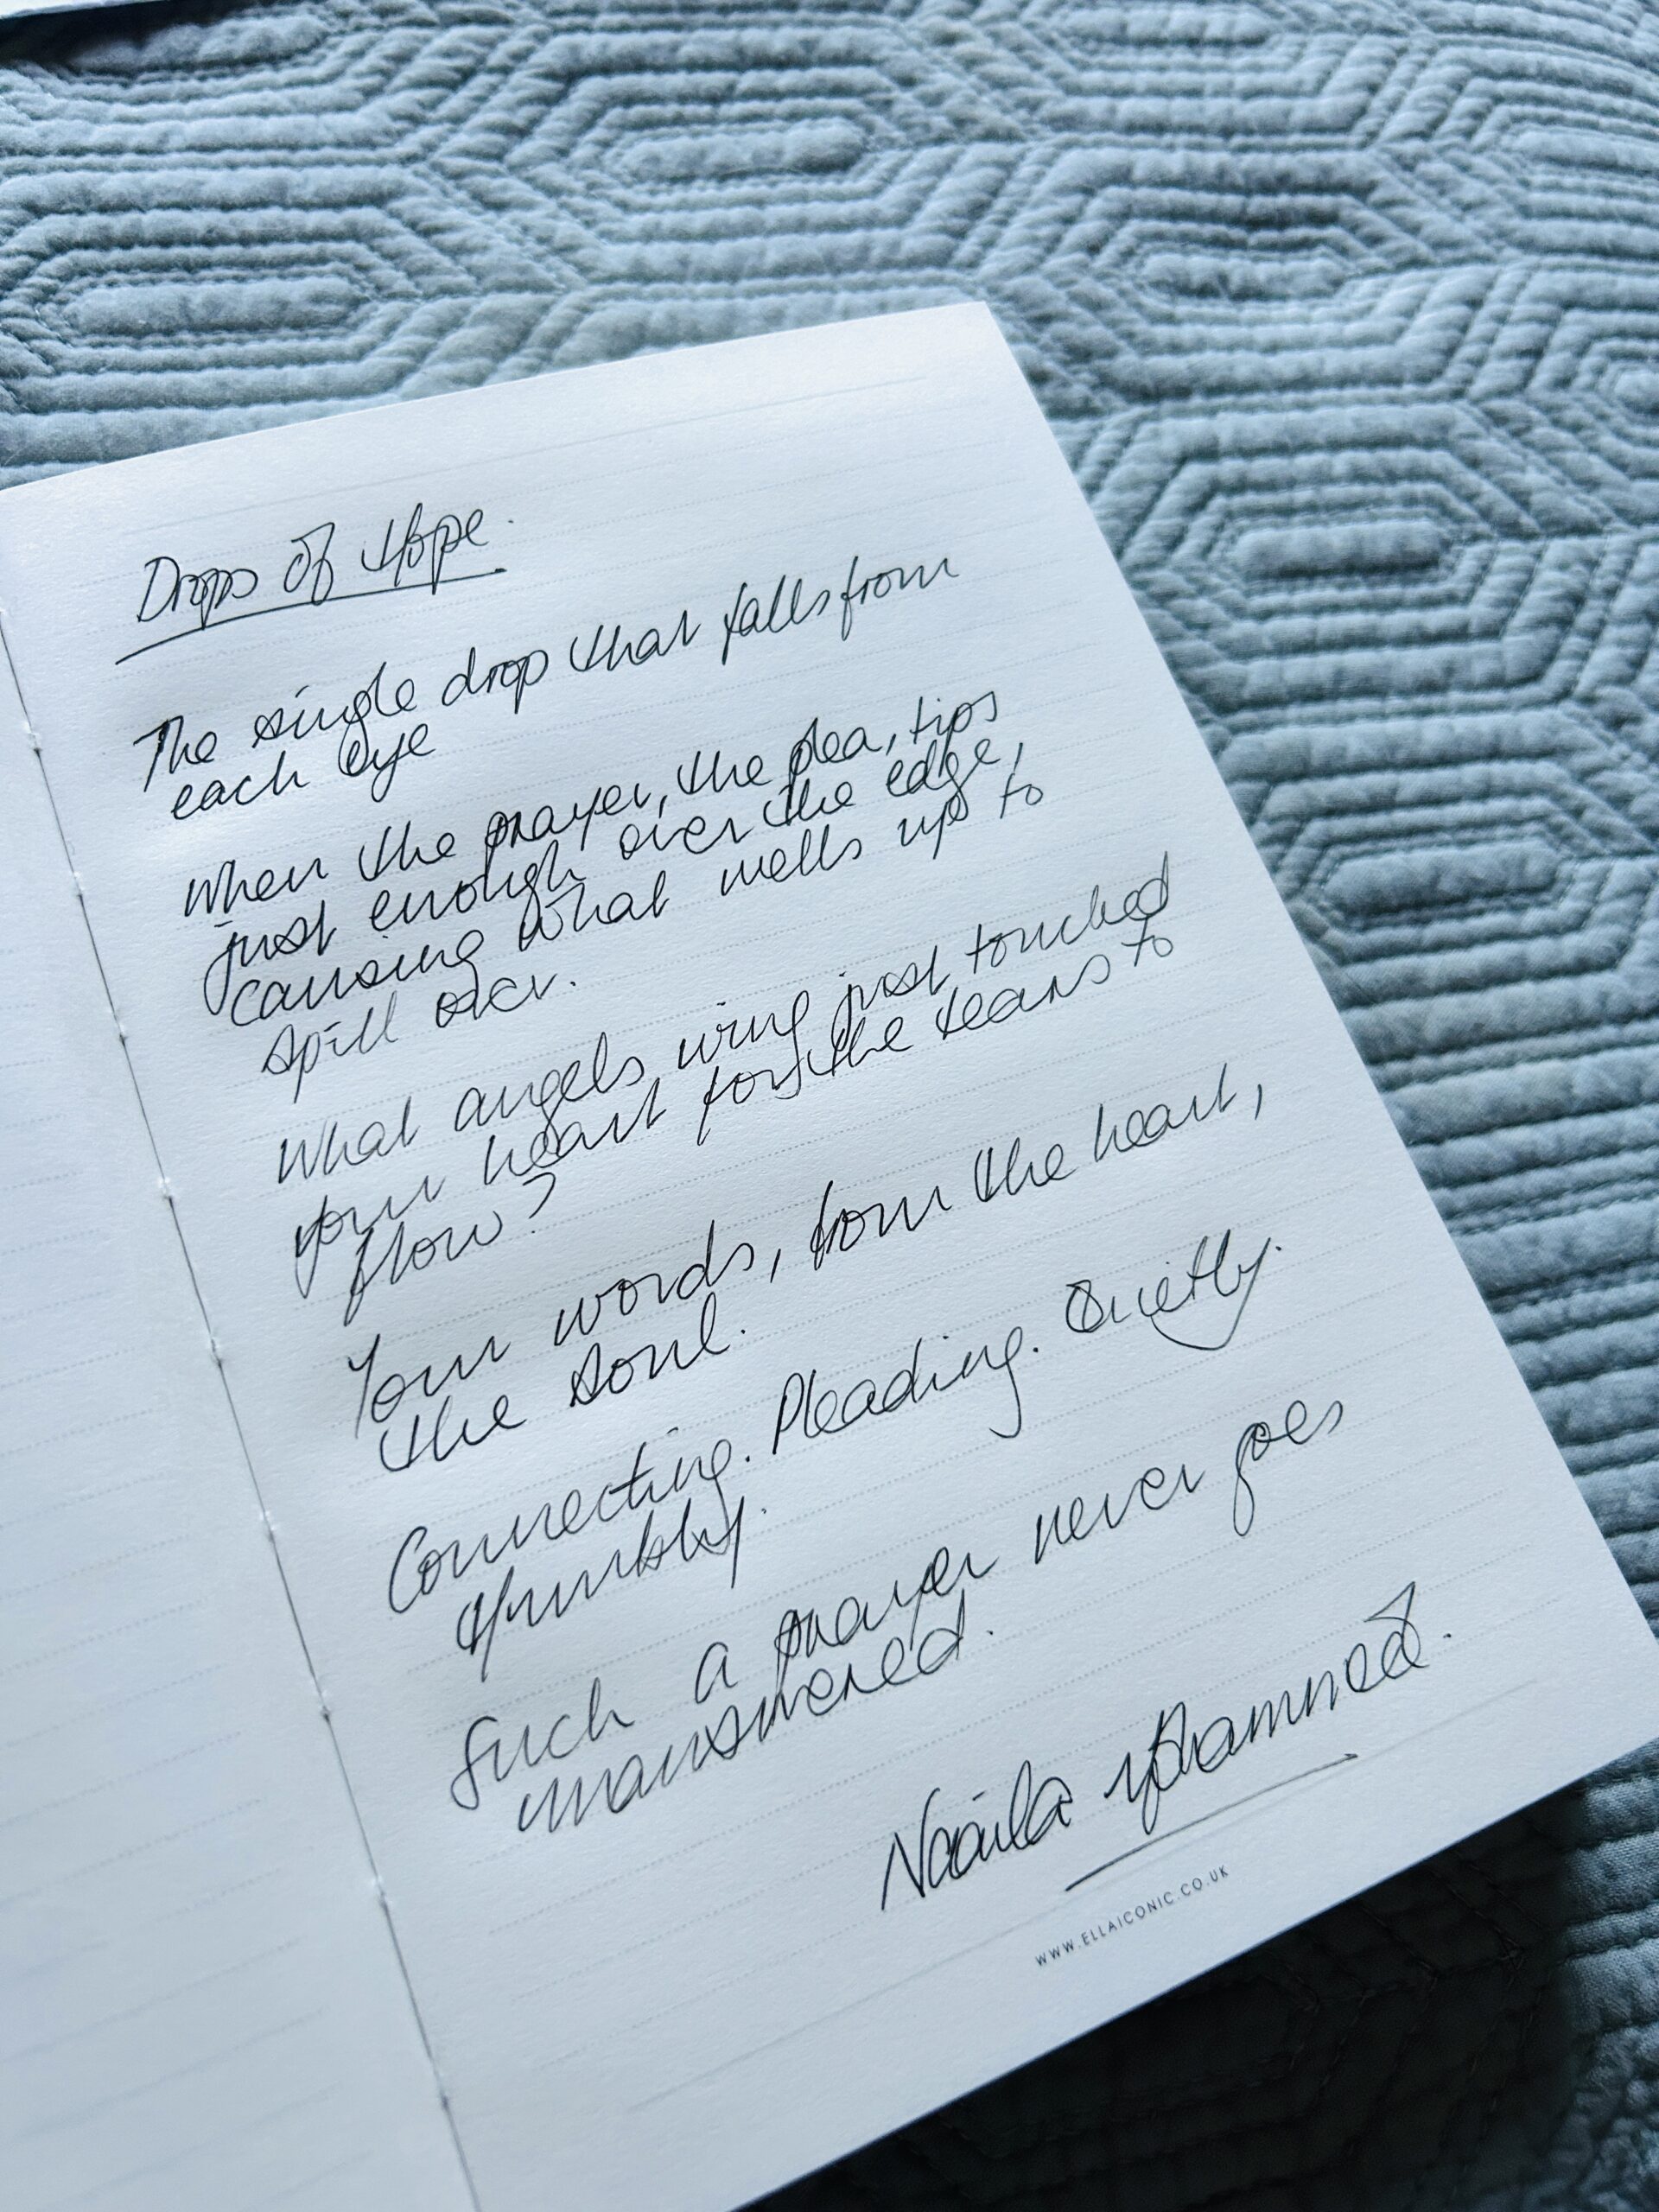 Drops of Hope.
The single drop that falls from
each eye
When the prayer, the plea, tips
just enough over the edge,
causing what wells up to
spill over.
What angels wing just touched
your heart for the tears to
flow?
Your words, from the heart,
the soul.
Connecting. Pleading. Quietly.
Humbly.
Such a prayer never goes
unanswered.
Naaila
WWW.ELLAICONIC.CO.UK